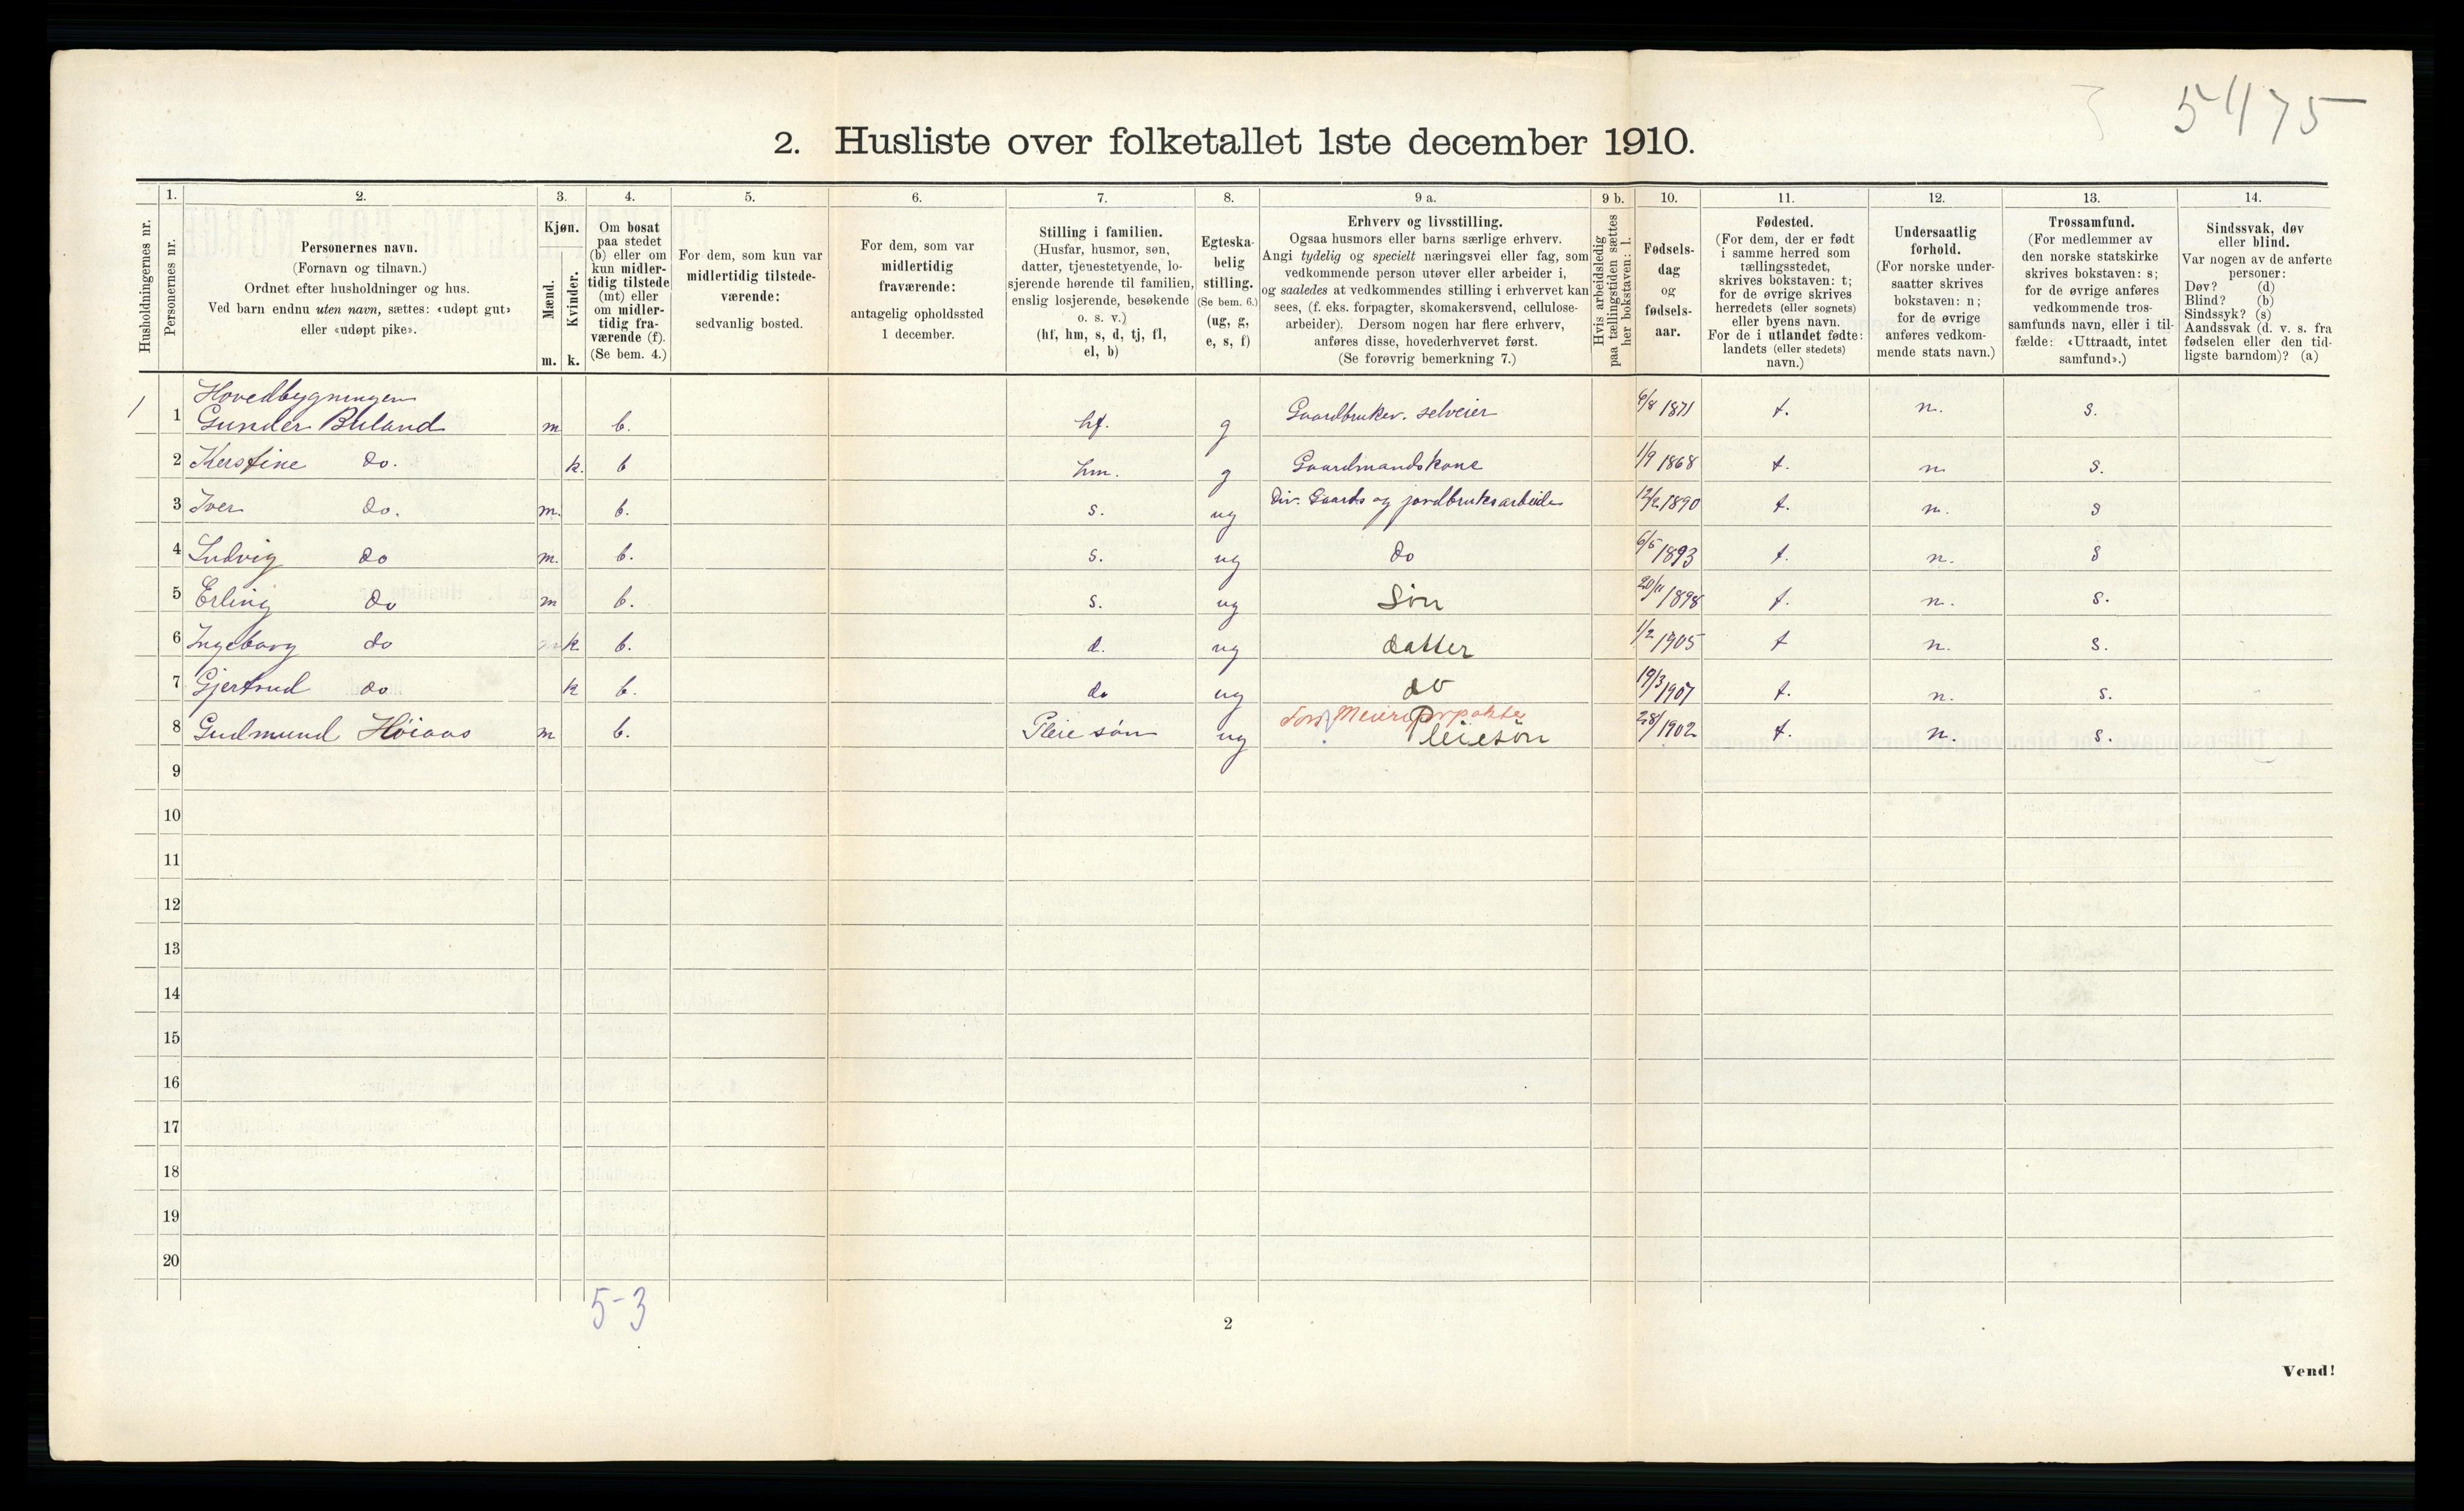 5475
2. Husliste over folketallet 1ste december 1910.
Husholdningernes nr.
1.
Personernes nr.
2.
Personernes navn.
(Fornavn og tilnavn.)
Ordnet efter husholdninger og hus.
Ved barn endnu uten navn, sættes: «udøpt gut»
eller «udøpt pike».
3.
Kjøn.
Mænd.
Kvinder.
m. k.
4.
Om bosat
paa stedet
(b) eller om
kun midler-
tidig tilstede
(mt) eller
om midler-
tidig fra-
værende (f).
(Se bem. 4.)
5.
For dem, som kun var
midlertidig tilstede-
værende:
sedvanlig bosted.
6.
For dem, som var
midlertidig
fraværende:
antagelig opholdssted
1 december.
7.
Stilling i familien.
(Husfar, husmor, søn,
datter, tjenestetyende, lo-
sjerende hørende til familien,
enslig losjerende, besøkende
o. s. v.)
(hf, hm, s, d, tj, fl,
el, b)
8.
Egteska-
belig
stilling.
(Se bem. 6.)
(ug, g,
e, s, f)
9 a.
Erhverv og livsstilling.
Ogsaa husmors eller barns særlige erhverv.
Angi tydelig og specielt næringsvei eller fag, som
vedkommende person utøver eller arbeider i,
og saaledes at vedkommendes stilling i erhvervet kan
sees, (f. eks. forpagter, skomakersvend, cellulose-
arbeider). Dersom nogen har flere erhverv,
anføres disse, hovederhvervet først.
(Se forøvrig bemerkning 7.)
9 b.
Hvis arbeidsledig
paa tællingstiden sættes
her bokstaven: l.
10.
Fødsels-
dag
og
fødsels-
aar.
11.
Fødested.
(For dem, der er født
i samme herred som
tællingsstedet,
skrives bokstaven: t;
for de øvrige skrives
herredets (eller sognets)
eller byens navn.
For de i utlandet fødte:
landets (eller stedets)
navn.)
12.
Undersaatlig
forhold.
(For norske under-
saatter skrives
bokstaven: n;
for de øvrige
anføres vedkom-
mende stats navn.)
13.
Trossamfund.
(For medlemmer av
den norske statskirke
skrives bokstaven: s;
for de øvrige anføres
vedkommende tros-
samfunds navn, eller i til-
fælde: «Uttraadt, intet
samfund».)
14.
Sindssvak, døv
eller blind.
Var nogen av de anførte
personer:
Døv? (d)
Blind? (b)
Sindssyk? (s)
Aandssvak (d. v. s. fra
fødselen eller den tid-
ligste barndom)? (a)
Hovedbygningen
1 1 Gunder Birland m b. hf. g Gaardbruker. selveier 6/8 1871 t. n. s.
2 Kerstine do. k. b hm. g Gaardmandskone 1/9 1868 t. n s.
3 Iver do. m. b. s. ug Div. Gaards og jordbruksarbeide 12/2 1890 t. n. s
4 Ludvig do m. b. s. ug do 6/5 1893 t. n. s
5 Erling do m b. s. ug Søn 20/11 1898 t. n. s.
6 Ingeborg do k b. d. ug datter 1/2 1905 t n. s.
7 Gjertrud do k b. do ug do 19/3 1907 t. n. s.
8 Gudmund Höiaas m b. Pleie søn ug Meieriforpakter Pleiesön 28/ 1902 t. n. s.
9
10
11
12
13
14
15
16
17
18
19
20
5-3
2
Vend!